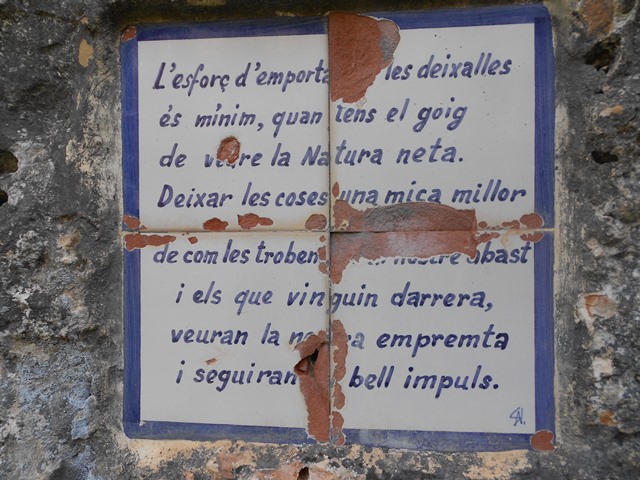 L'esforç les deixalles
és mínim, quan tens el goig
de la Natura neta.
Deixar les coses una mica millor
de com les troben nostre abast
i els que vinguin darrera,
veuran la empremta
i seguiran bell impuls.